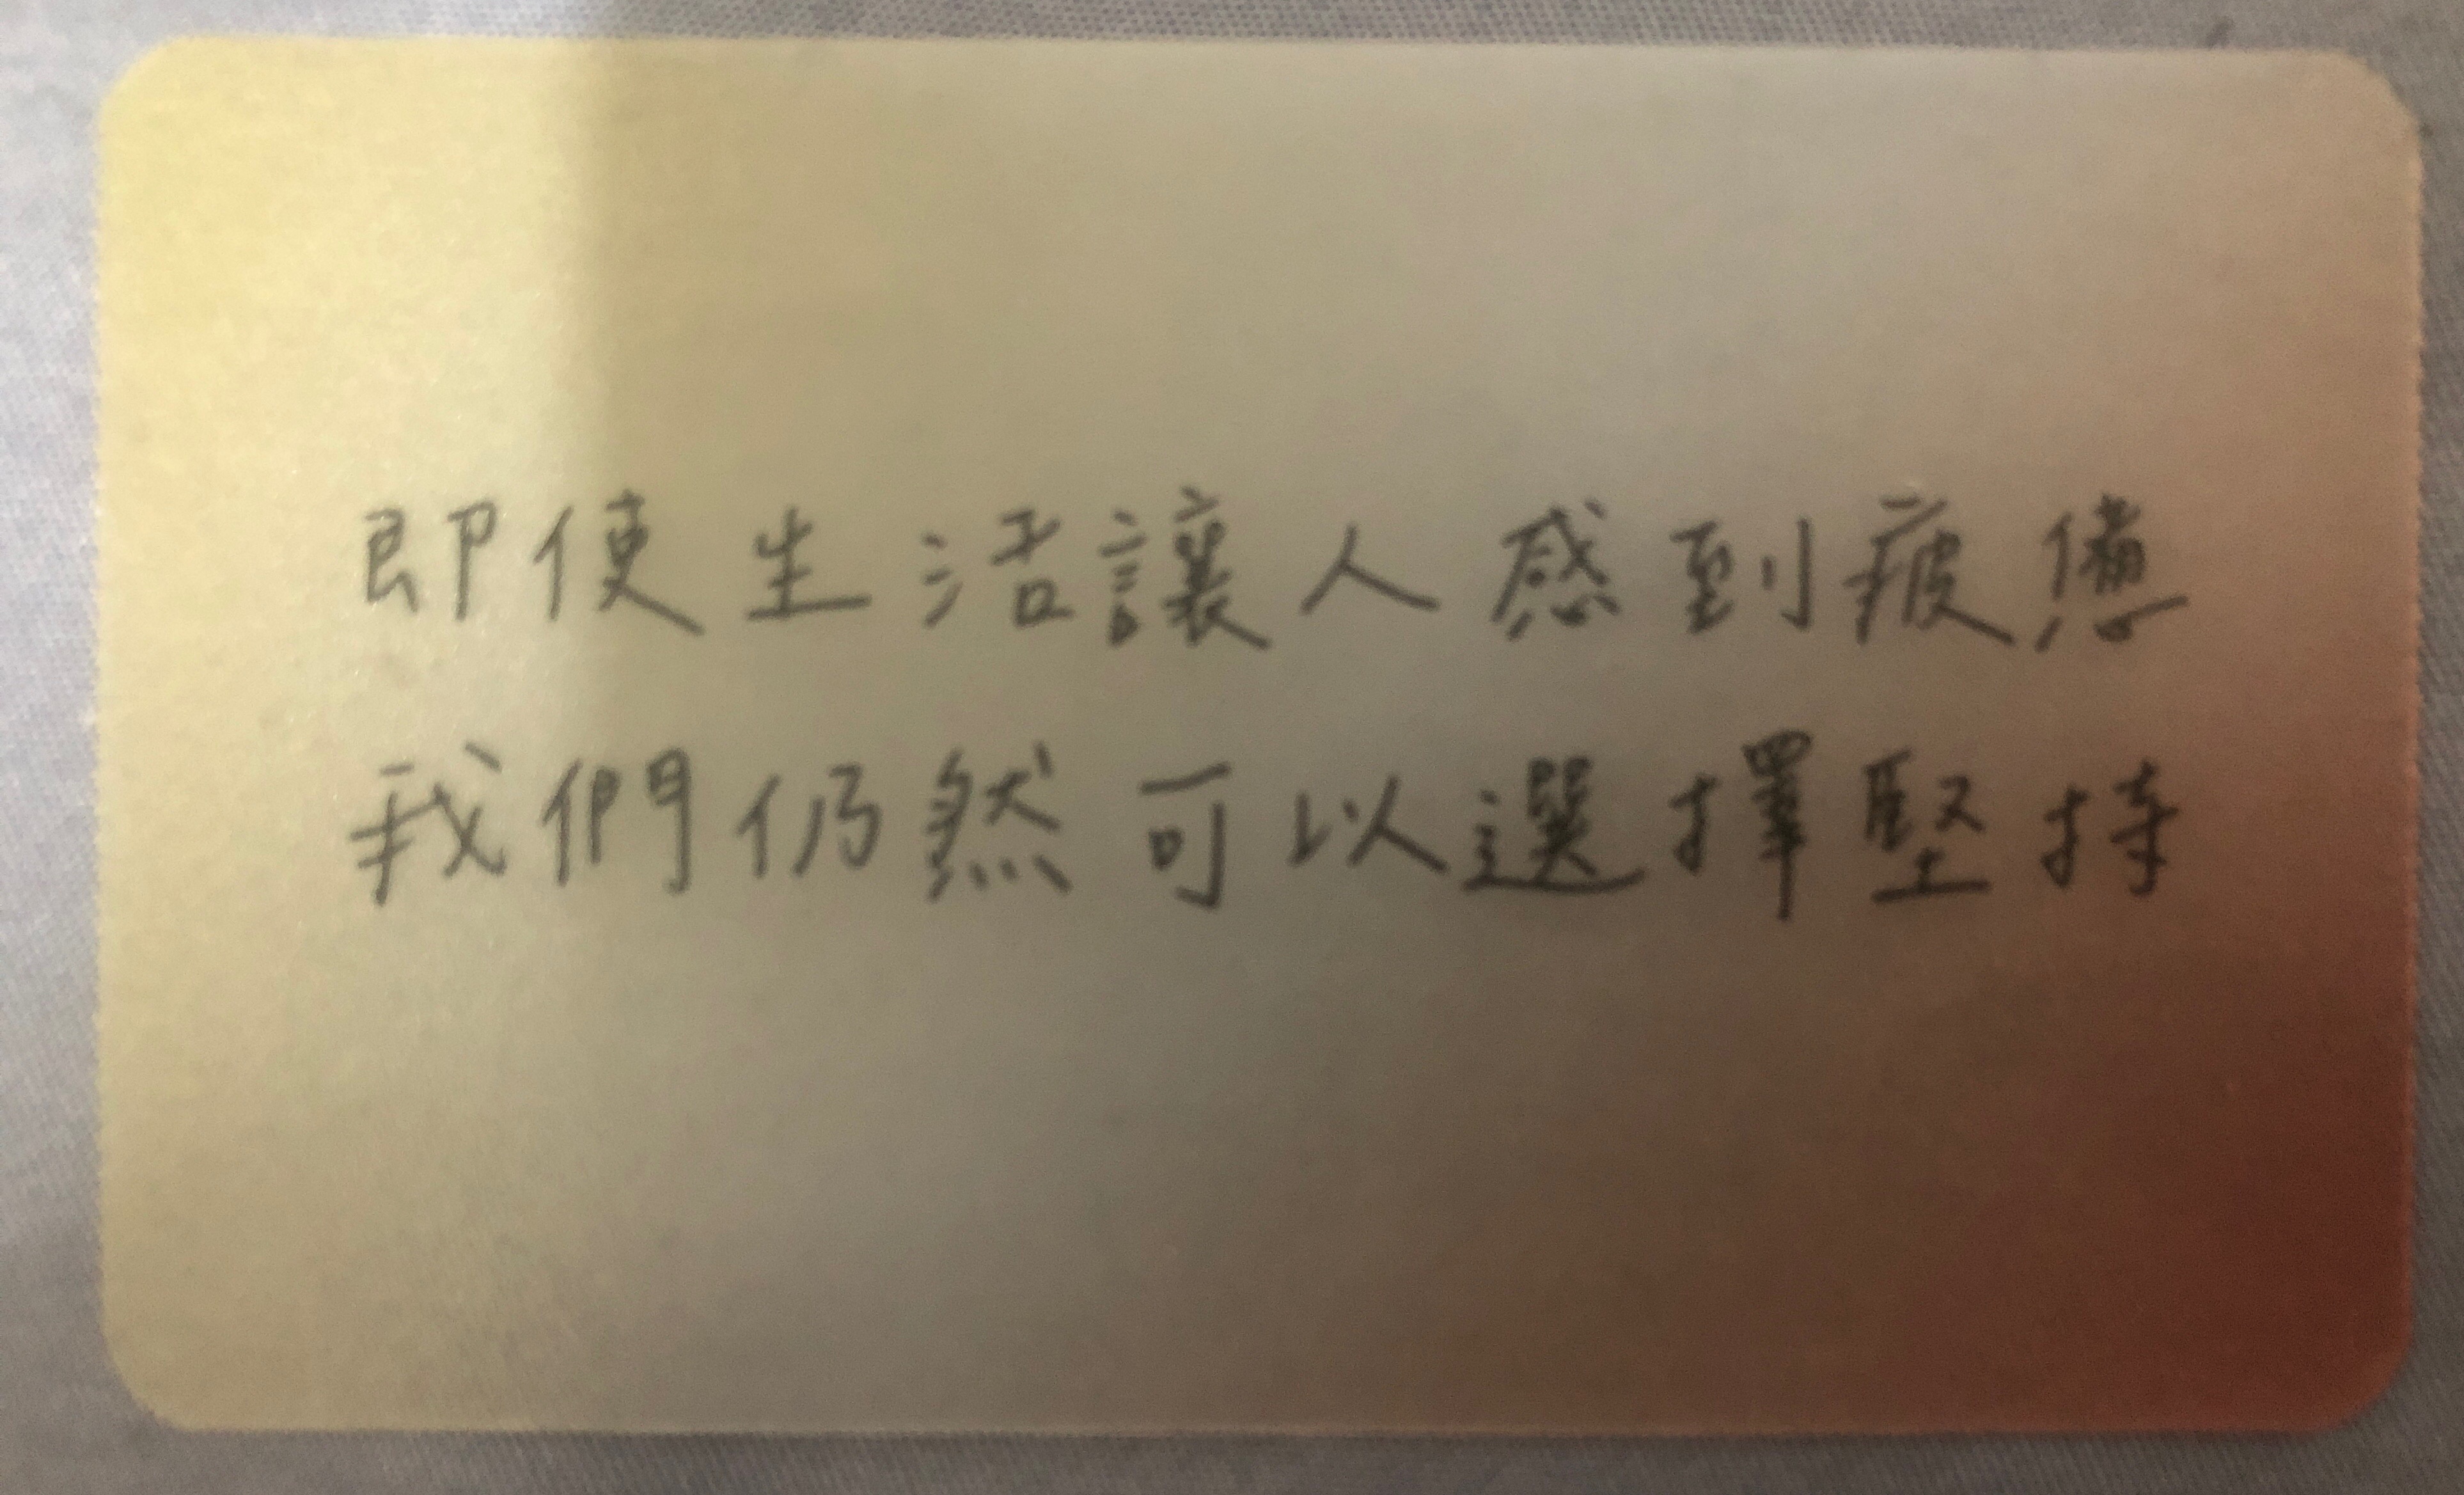 即使生活讓人感到疲憊
我們仍然可以選擇堅持